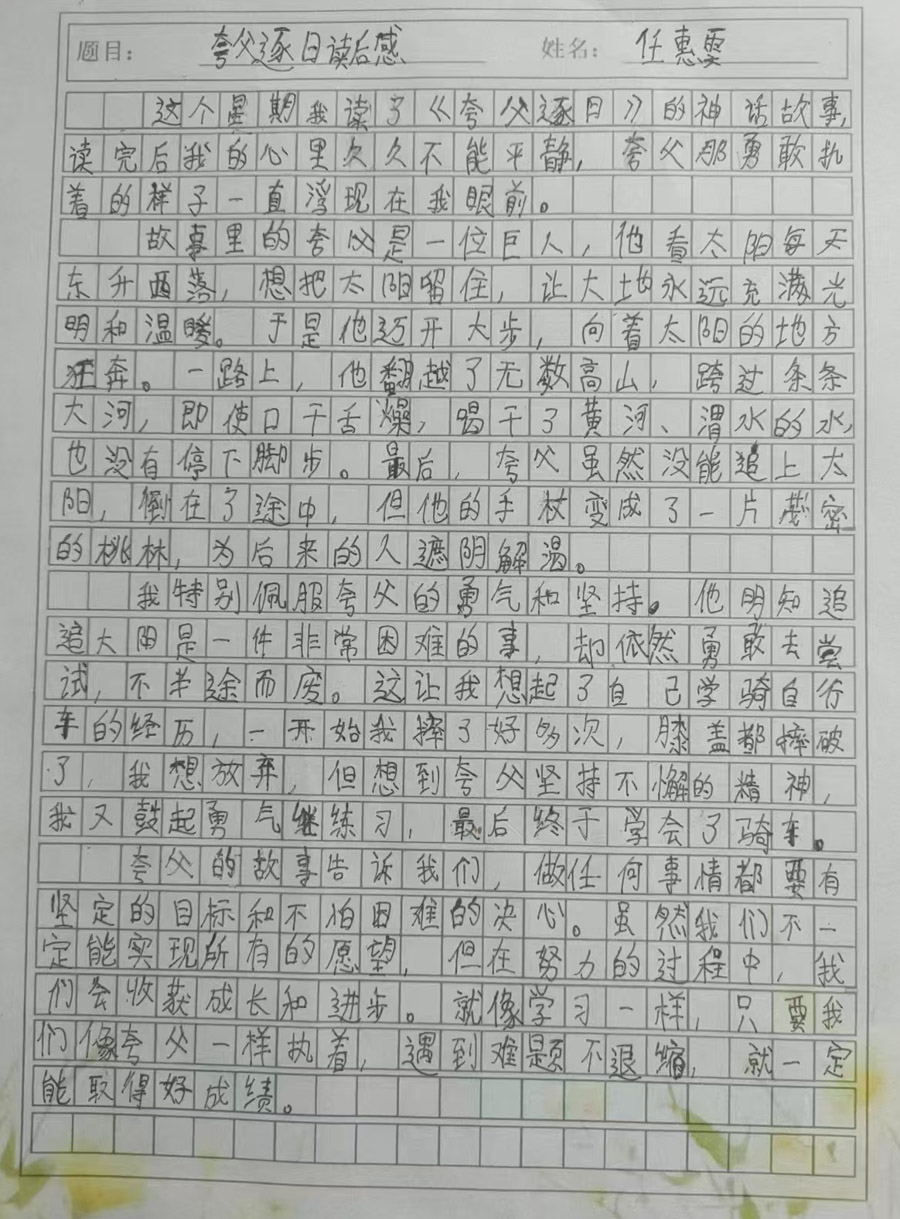 题目： 夸父逐日读后感 姓名： 任惠雯
这个星期我读了《夸父逐日》的神话故事，
读完后我的心里久久不能平静，夸父那勇敢执
着的样子一直浮现在我眼前。
故事里的夸父是一位巨人，他看太阳每天
东升西落，想把太阳留住，让大地永远充满光
明和温暖。于是他迈开大步，向着太阳的地方
狂奔。一路上，他翻越了无数高山，跨过条条
大河，即使口干舌燥，喝干了黄河、渭水的水，
也没有停下脚步。最后，夸父虽然没能追上太
阳，倒在了途中，但他的手杖变成了一片茂密
的桃林，为后来的人遮阴解渴。
我特别佩服夸父的勇气和坚持。他明知追
追太阳是一件非常困难的事，却依然勇敢去尝
试，不半途而废。这让我想起了自己学骑自行
车的经历，一开始我摔了好多次，膝盖都摔破
了，我想放弃，但想到夸父坚持不懈的精神，
我又鼓起勇气继练习，最后终于学会了骑车。
夸父的故事告诉我们，做任何事情都要有
坚定的目标和不怕困难的决心。虽然我们不一
定能实现所有的愿望，但在努力的过程中，我
们会收获成长和进步。就像学习一样，只要我
们像夸父一样执着，遇到难题不退缩，就一定
能取得好成绩。